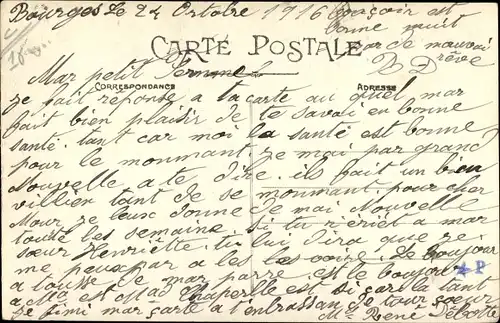 Bourges Le 24 Octobre 1916
bonsoir est
bonne nuit
par de mauvai
rêve
CARTE POSTALE
Mar petit
CORRESPONDANCE
ADRESSE
je fait reponse a ta carte au quel mar
fait bien plaisir de te savoi en bonne
santé tant car moi la santé est bonne
pour le monmant. je mai par grand
Nouvelle a te dire. ils fait un bien
villien tant de se monmant. pour cher
Mour je leur donne de mai Nouvelle
toute les semaine. si tu ri a mar
sœur Henriette. tu lui dira que je
me peu par a les voire. le boujour
a de mar parre. est le boujour
P
a Ma est Mad Chapelle est si gare la tant
je fini mar carte a t'enbrassan de tour cœur
René